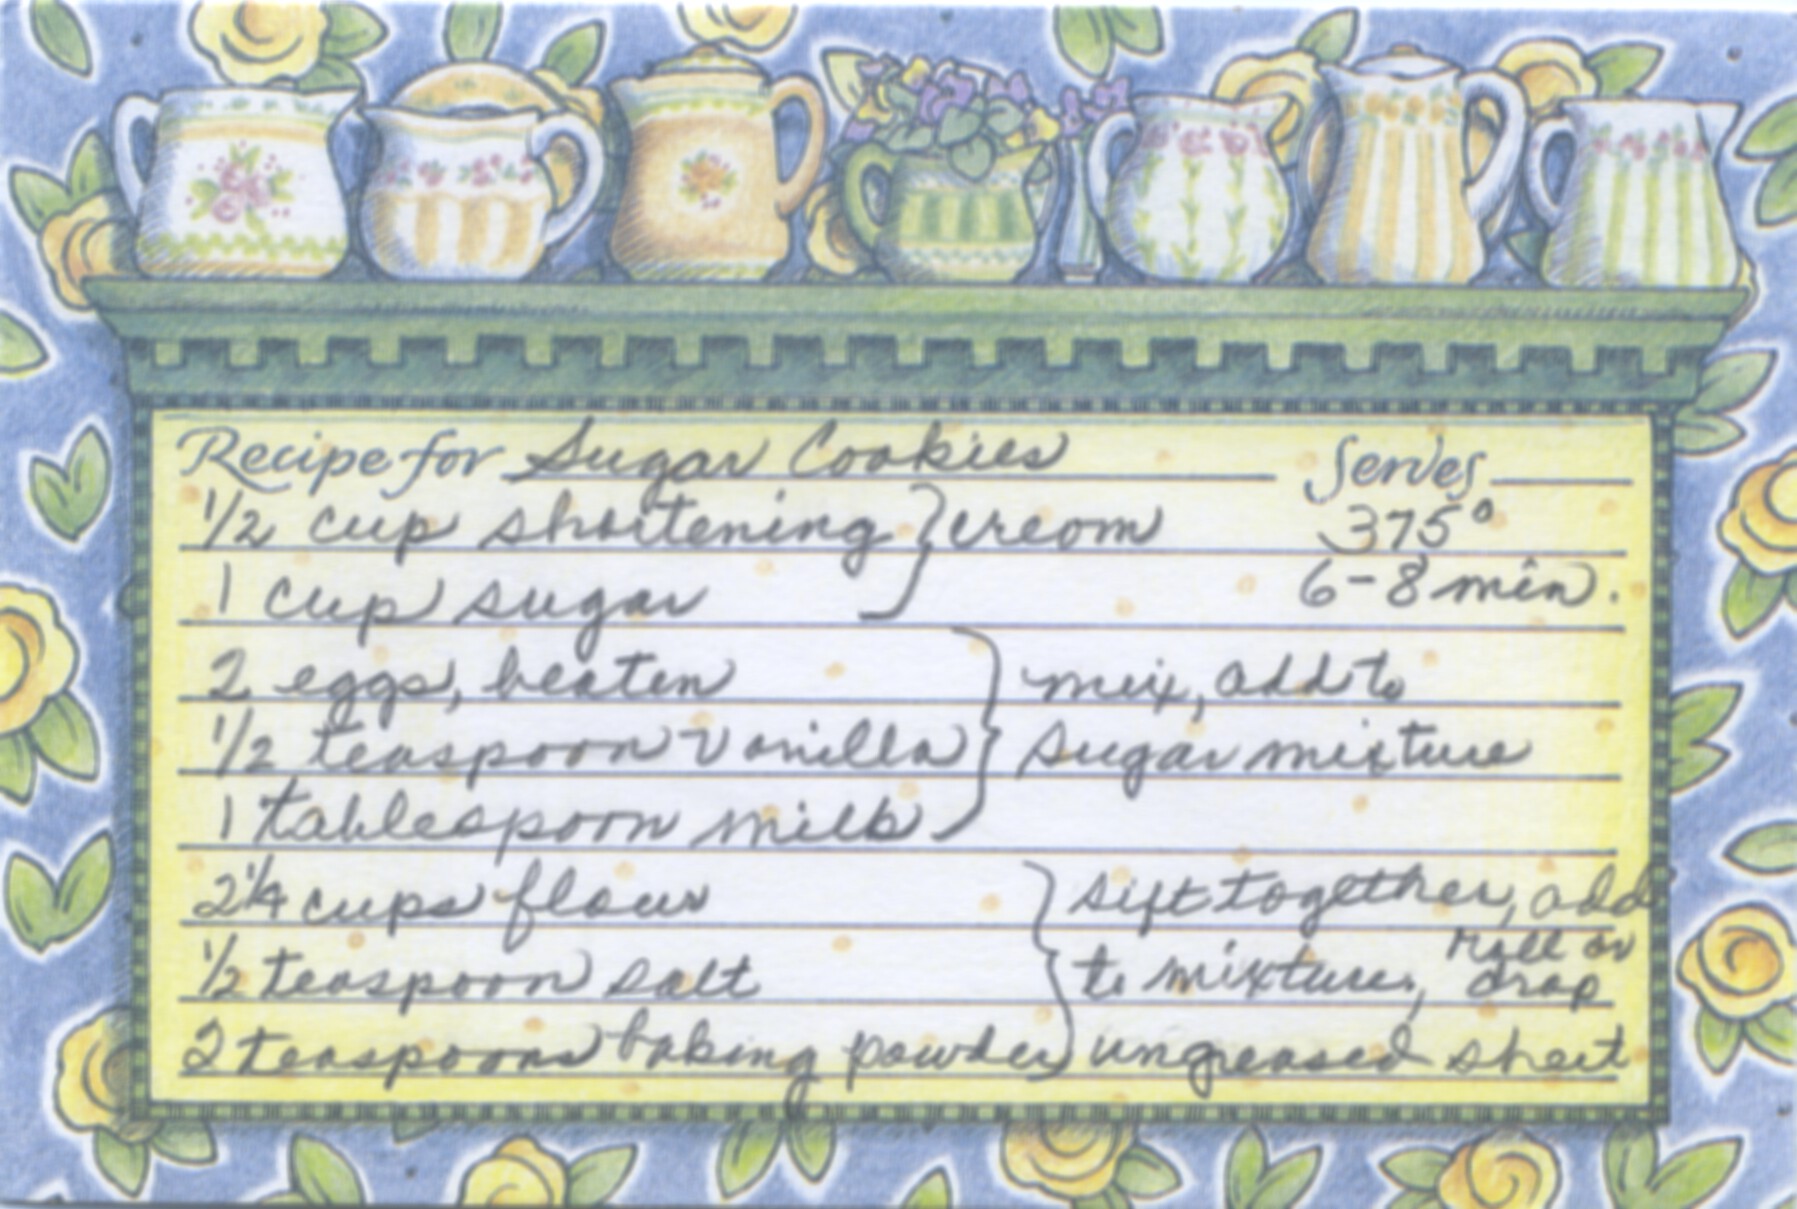 Recipe for Sugar Cookies Serves
1/2 cup shortening } cream 375°
1 cup sugar 6-8 min.
2 eggs, beaten } mix, add to
1/2 teaspoon vanilla sugar mixture
1 tablespoon milk
2 1/4 cups flour } sift together, add
1/2 teaspoon salt to mixture, roll or drop
2 teaspoons baking powder ungreased sheet